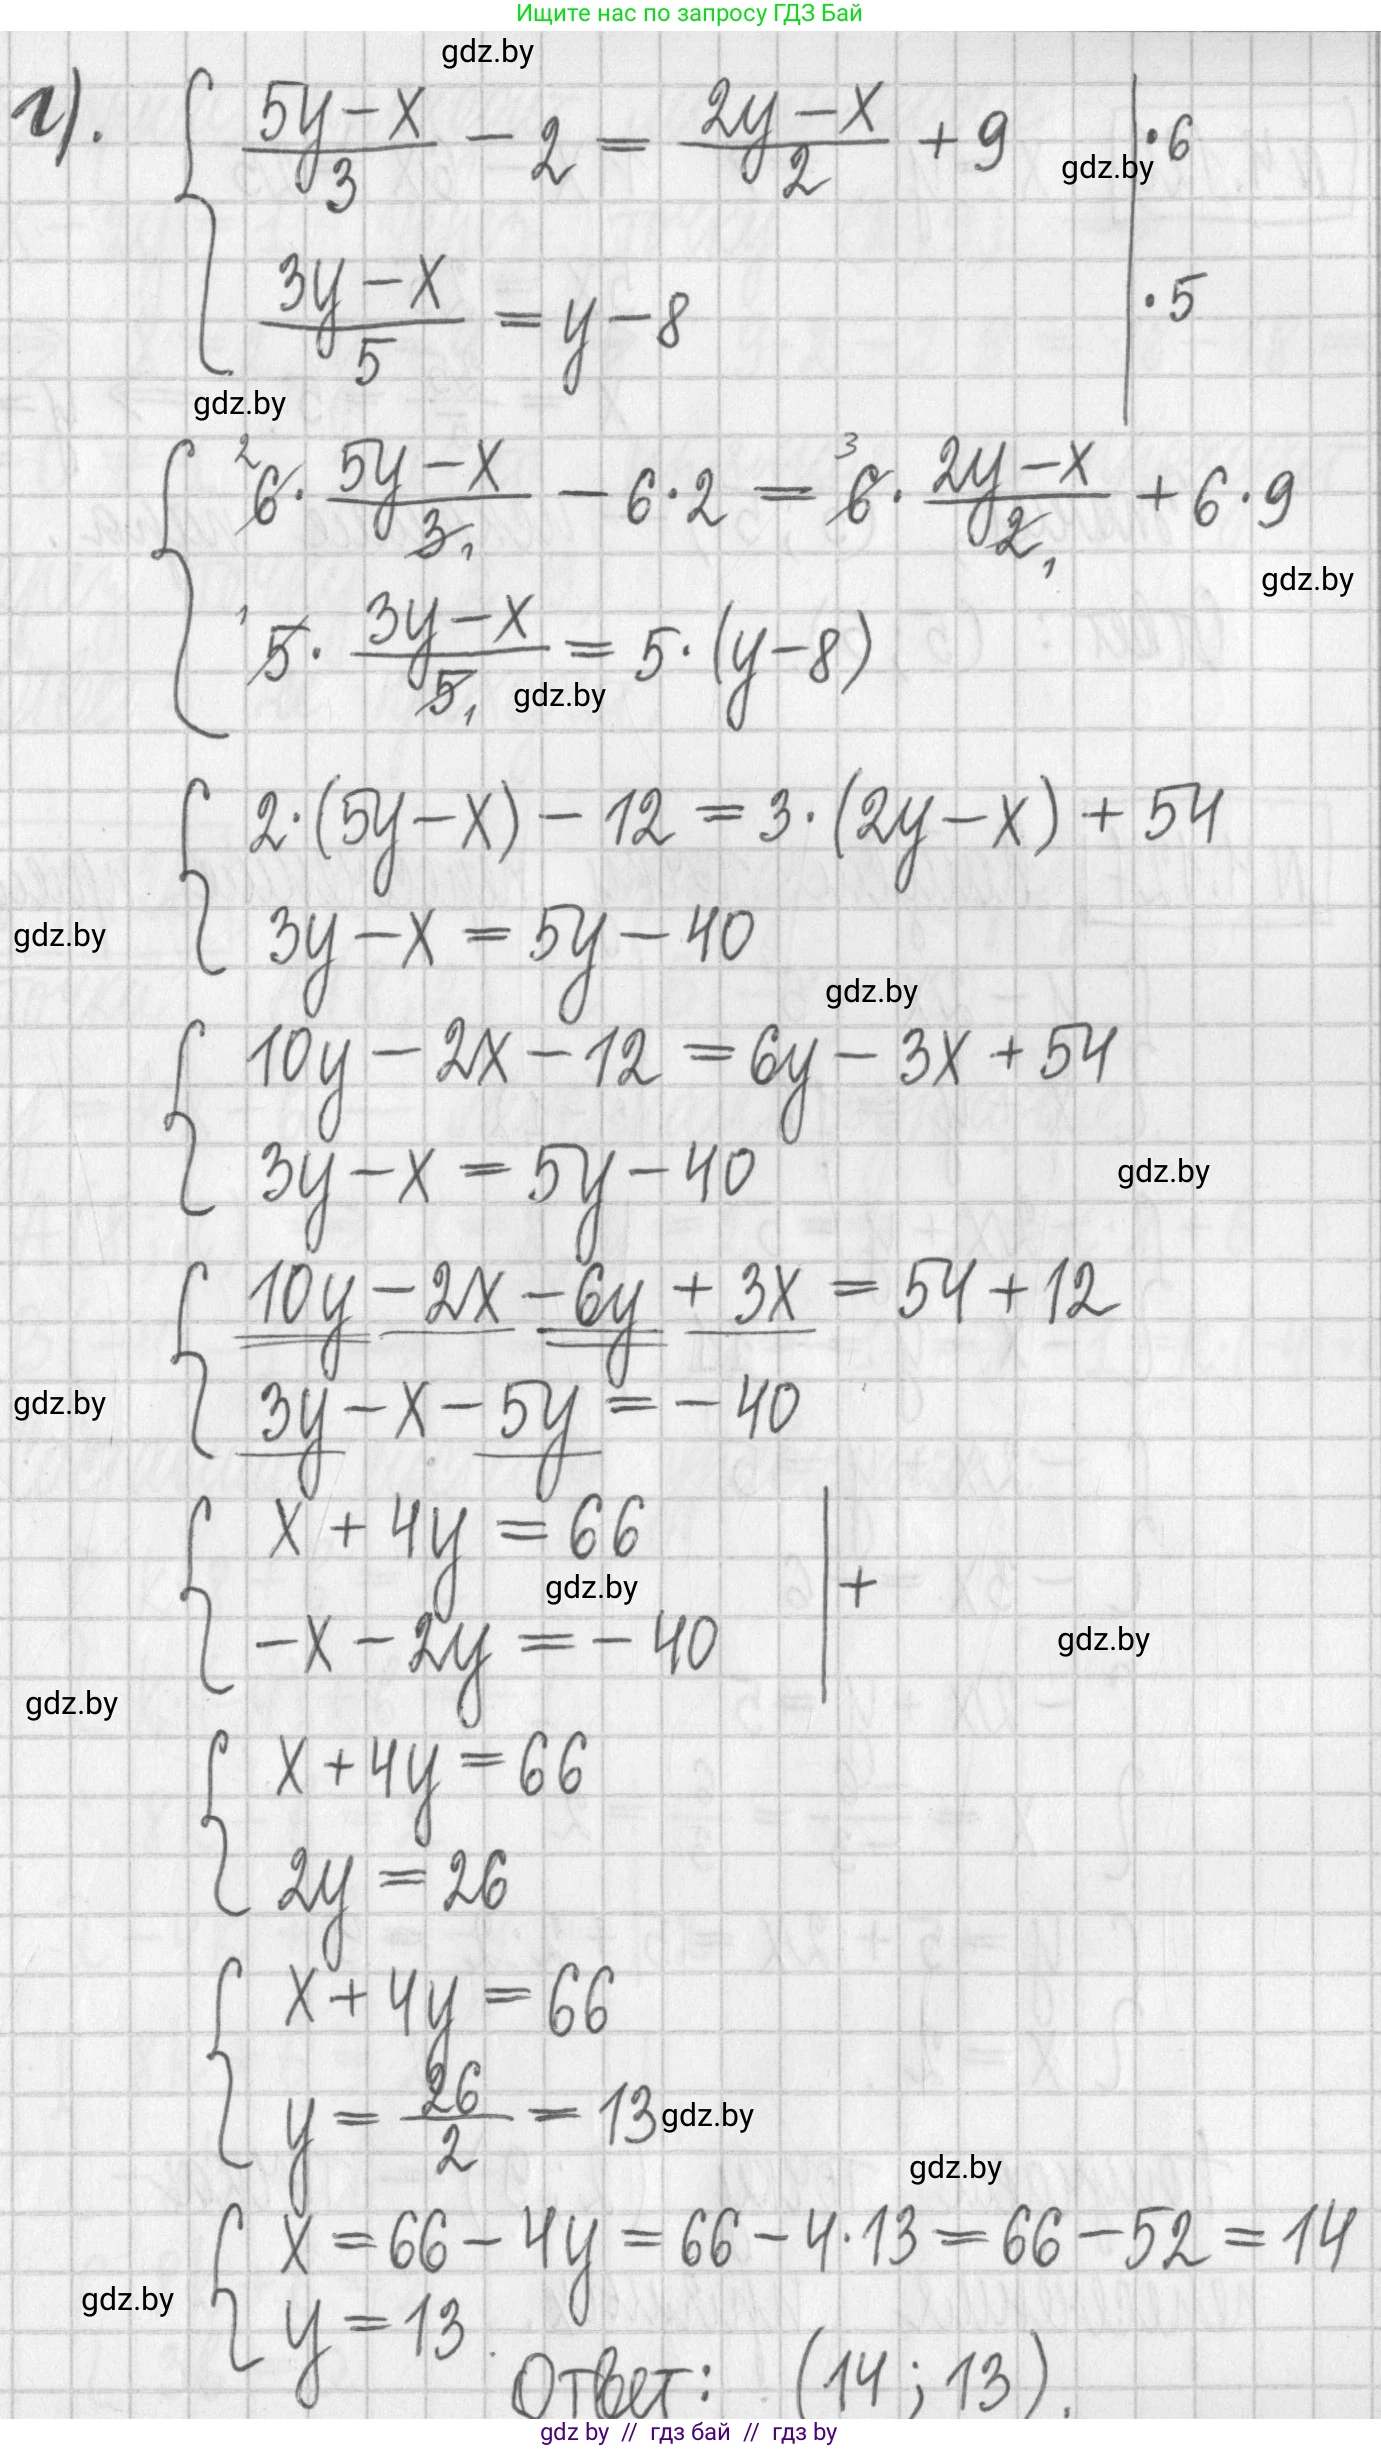 Ищите нас по запросу ГДЗ Бай
gdz.by
г). { (5y-x)/3 - 2 = (2y-x)/2 + 9 | ·6
gdz.by
(3y-x)/5 = y-8 | ·5
gdz.by
{ ²6· (5y-x)/3,1 - 6·2 = ³6· (2y-x)/2,1 + 6·9
gdz.by
¹5· (3y-x)/5,1 = 5·(y-8)
gdz.by
{ 2·(5y-x) - 12 = 3·(2y-x) + 54
3y-x = 5y-40
gdz.by
gdz.by
{ 10y - 2x - 12 = 6y - 3x + 54
3y-x = 5y-40
gdz.by
{ 10y - 2x - 6y + 3x = 54 + 12
3y - x - 5y = -40
gdz.by
{ x + 4y = 66 | +
gdz.by
-x - 2y = -40
gdz.by
gdz.by
{ x + 4y = 66
2y = 26
{ x + 4y = 66
y = 26/2 = 13
gdz.by
gdz.by
{ x = 66 - 4y = 66 - 4·13 = 66 - 52 = 14
gdz.by
y = 13.
Ответ: (14; 13).
gdz by // гдз бай // гдз by